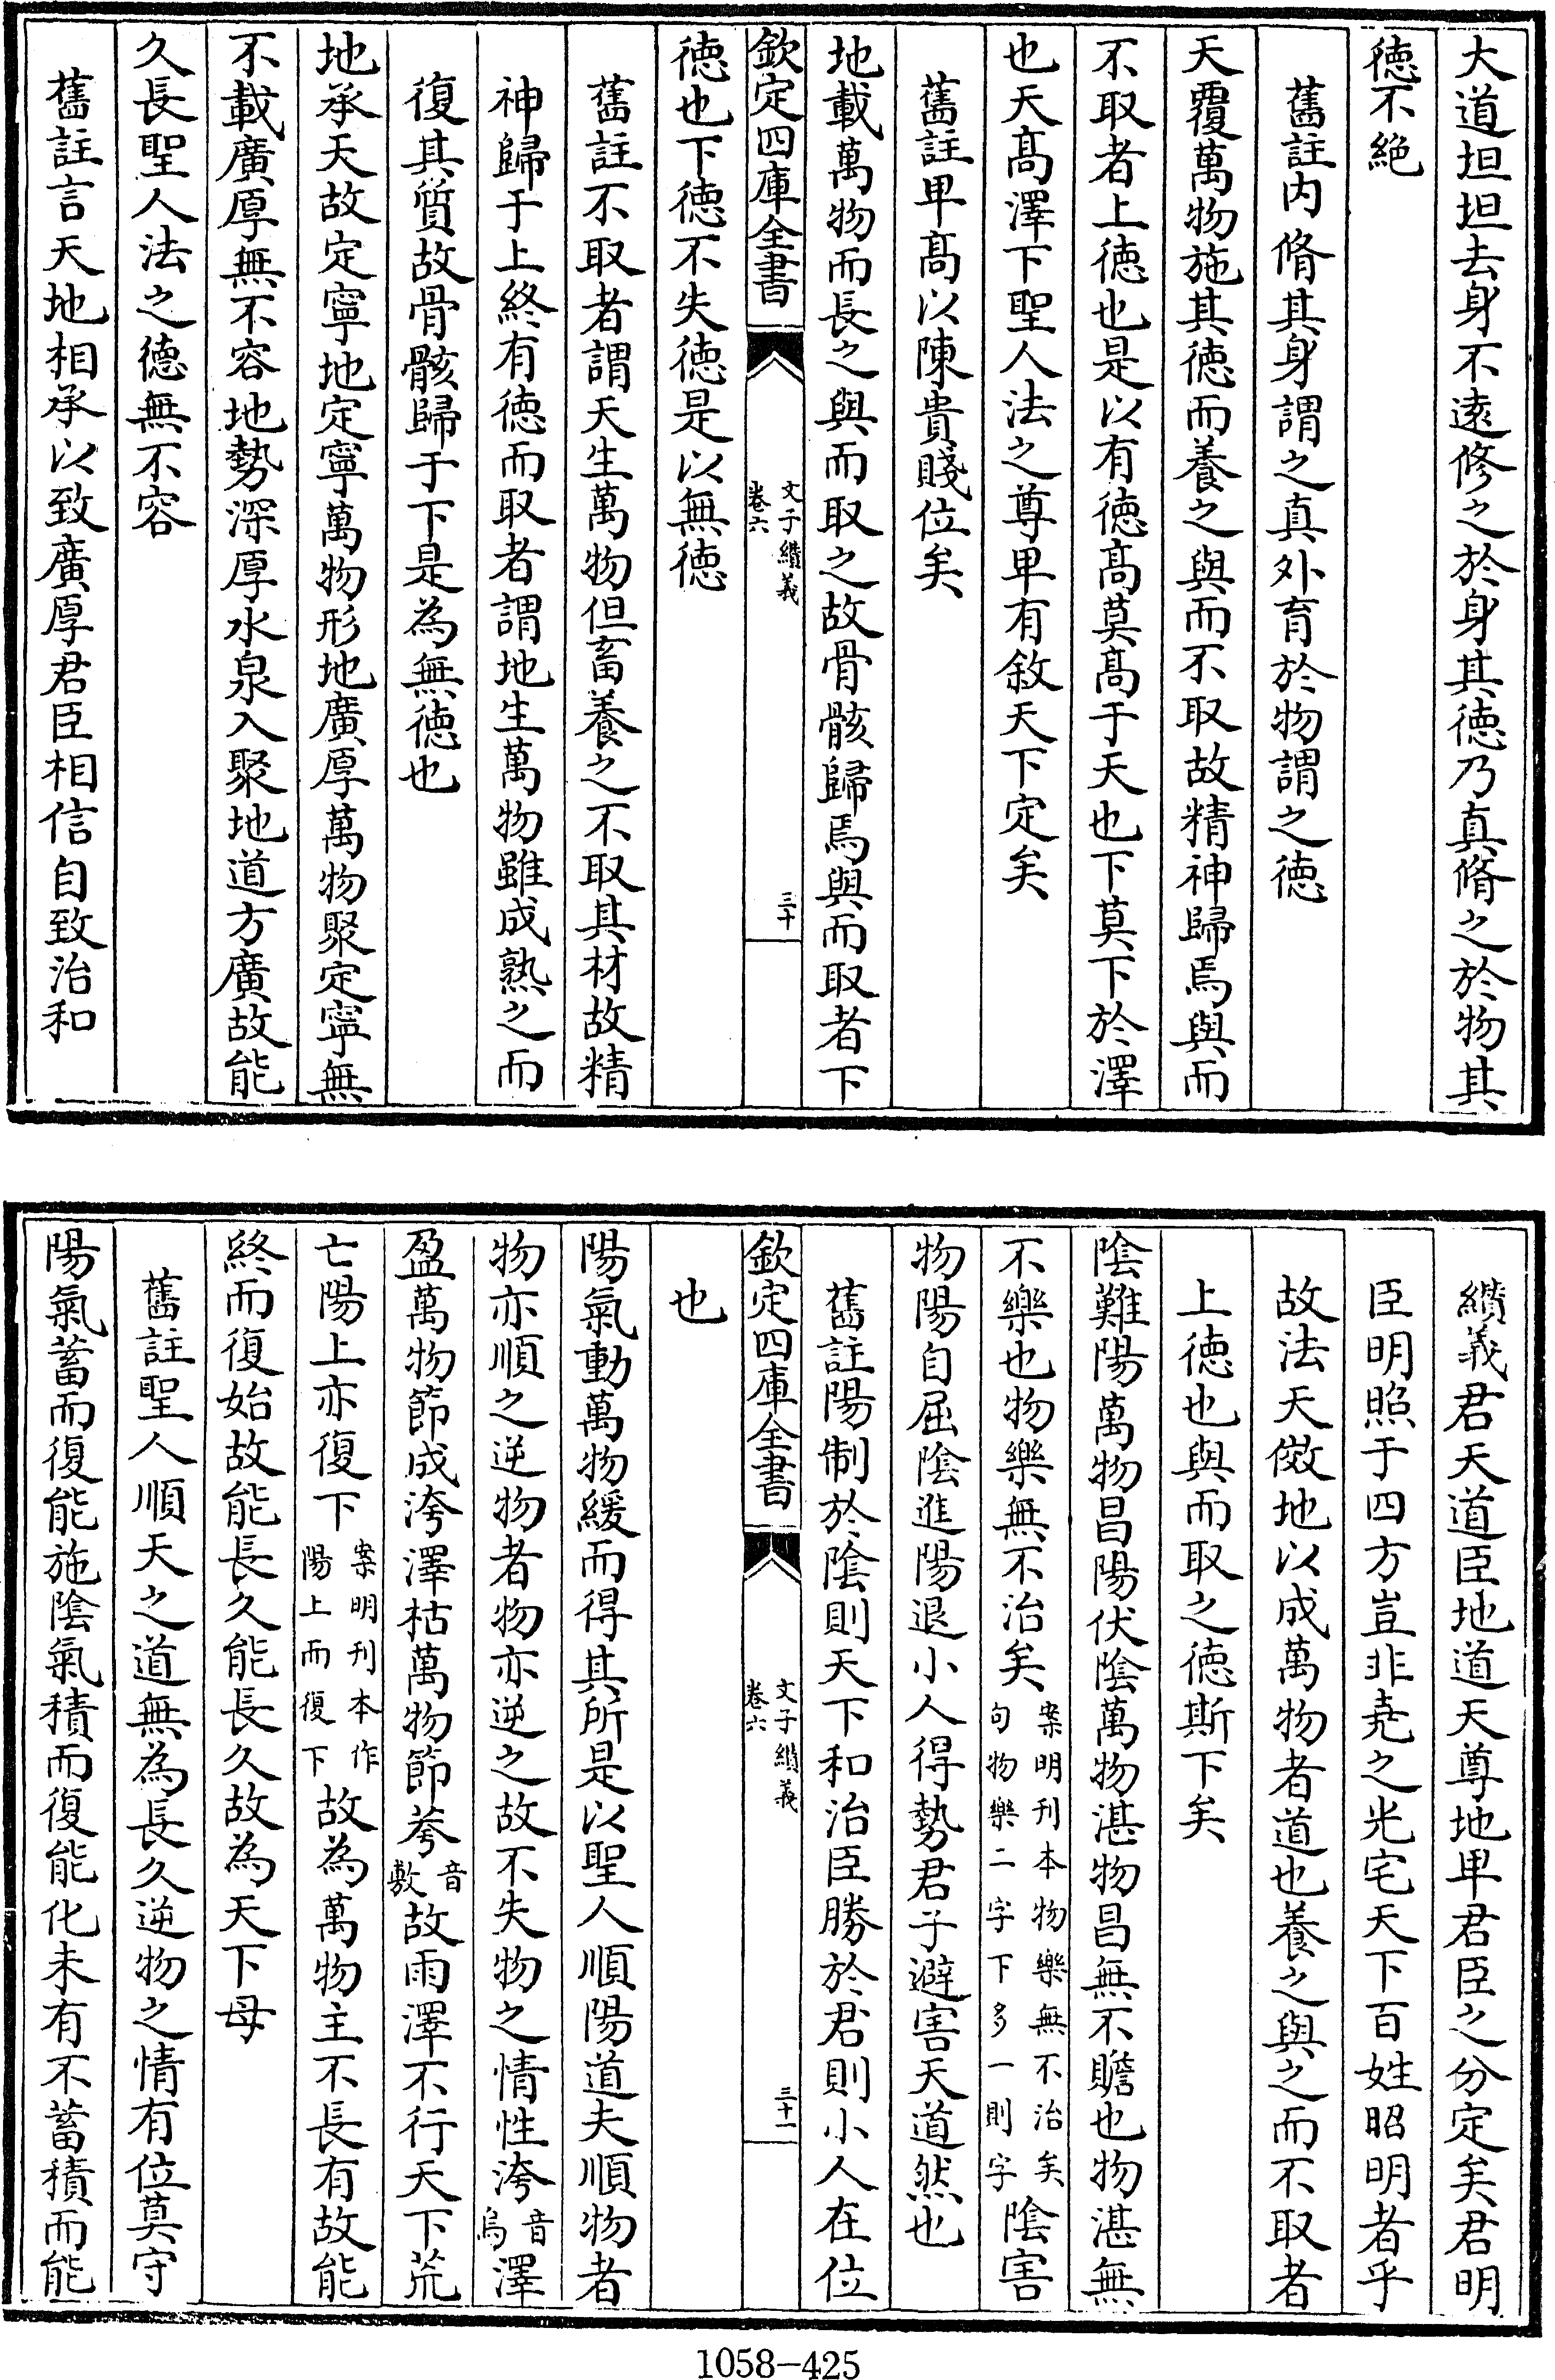 大道坦坦去身不逺修之於身其徳乃真脩之於物其
徳不絶
舊註内脩其身謂之真外育於物謂之徳
天覆萬物施其徳而養之與而不取故精神歸焉與而
不取者上徳也是以有徳髙莫髙于天也下莫下於澤
也天髙澤下聖人法之尊卑有敘天下定矣
舊註卑髙以陳貴賤位矣
地載萬物而長之與而取之故骨骸歸焉與而取者下
欽定四庫全書
文子纘義
卷六
三十
徳也下徳不失徳是以無徳
舊註不取者謂天生萬物但畜養之不取其材故精
神歸于上終有徳而取者謂地生萬物雖成熟之而
復其質故骨骸歸于下是為無徳也
地承天故定寧地定寧萬物形地廣厚萬物聚定寧無
不載廣厚無不容地勢深厚水泉入聚地道方廣故能
久長聖人法之徳無不容
舊註言天地相承以致廣厚君臣相信自致治和
纘義君天道臣地道天尊地卑君臣之分定矣君明
臣明照于四方豈非堯之光宅天下百姓昭明者乎
故法天傚地以成萬物者道也養之與之而不取者
上徳也與而取之徳斯下矣
陰難陽萬物昌陽伏陰萬物湛物昌無不贍也物湛無
不樂也物樂無不治矣案明刊本物樂無不治矣句物樂二字下多一則字陰害
物陽自屈陰進陽退小人得勢君子避害天道然也
舊註陽制於陰則天下和治臣勝於君則小人在位
欽定四庫全書
文子纘義
卷六
三十一
也
陽氣動萬物緩而得其所是以聖人順陽道夫順物者
物亦順之逆物者物亦逆之故不失物之情性洿音烏澤
盈萬物節成洿澤枯萬物節荂音敷故雨澤不行天下荒
亡陽上亦復下案明刊本作陽上而復下故為萬物主不長有故能
終而復始故能長久能長久故為天下母
舊註聖人順天之道無為長久逆物之情有位莫守
陽氣蓄而復能施陰氣積而復能化未有不蓄積而能
1058-425